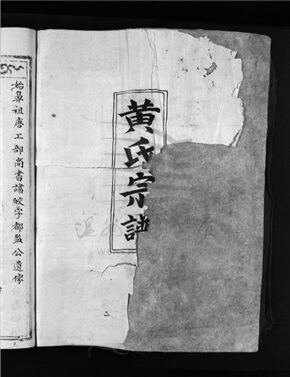 黄氏宗譜
始鼻祖唐工部尚書諱峭字都監公遺像